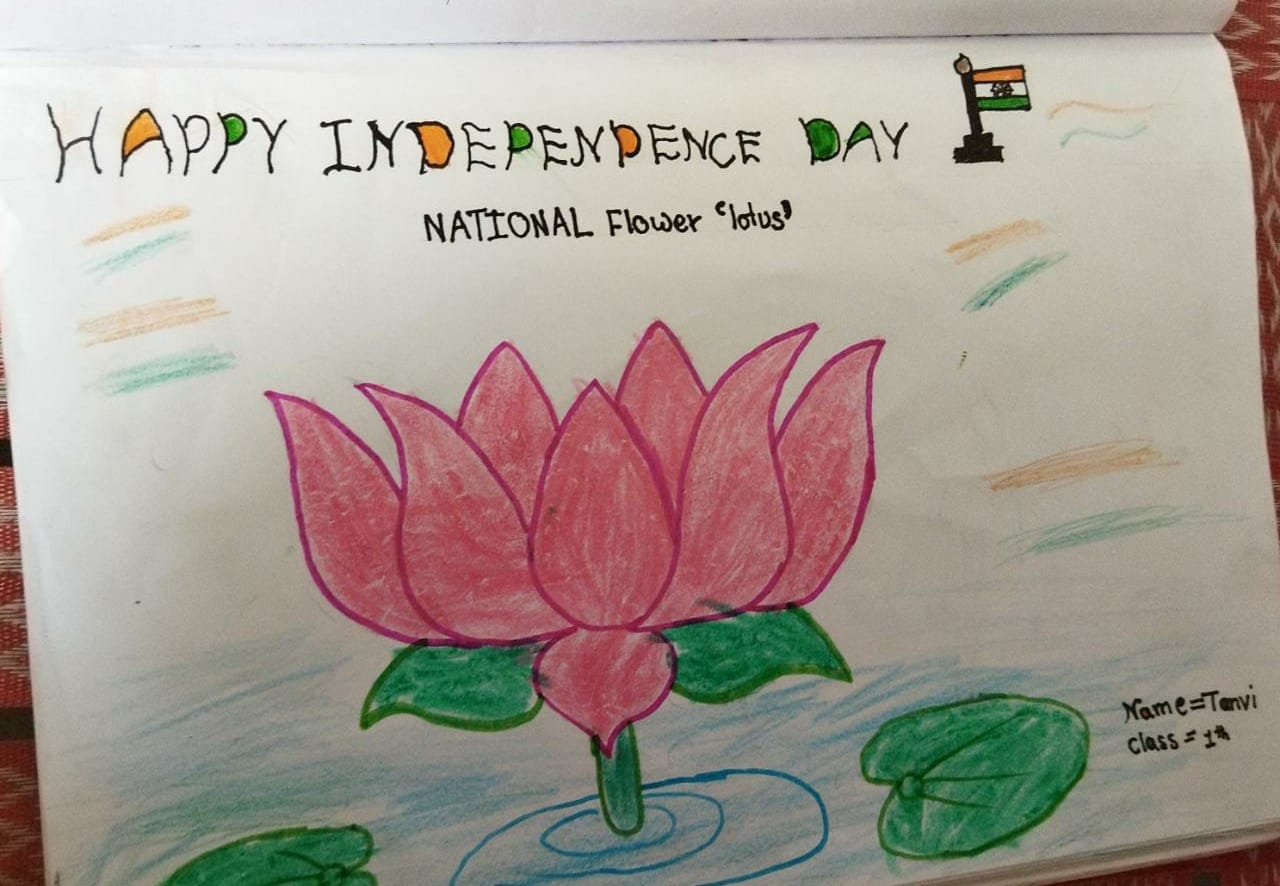 HAPPY INDEPENDENCE DAY
NATIONAL Flower 'lotus'
Name=Tanvi
class = 1th